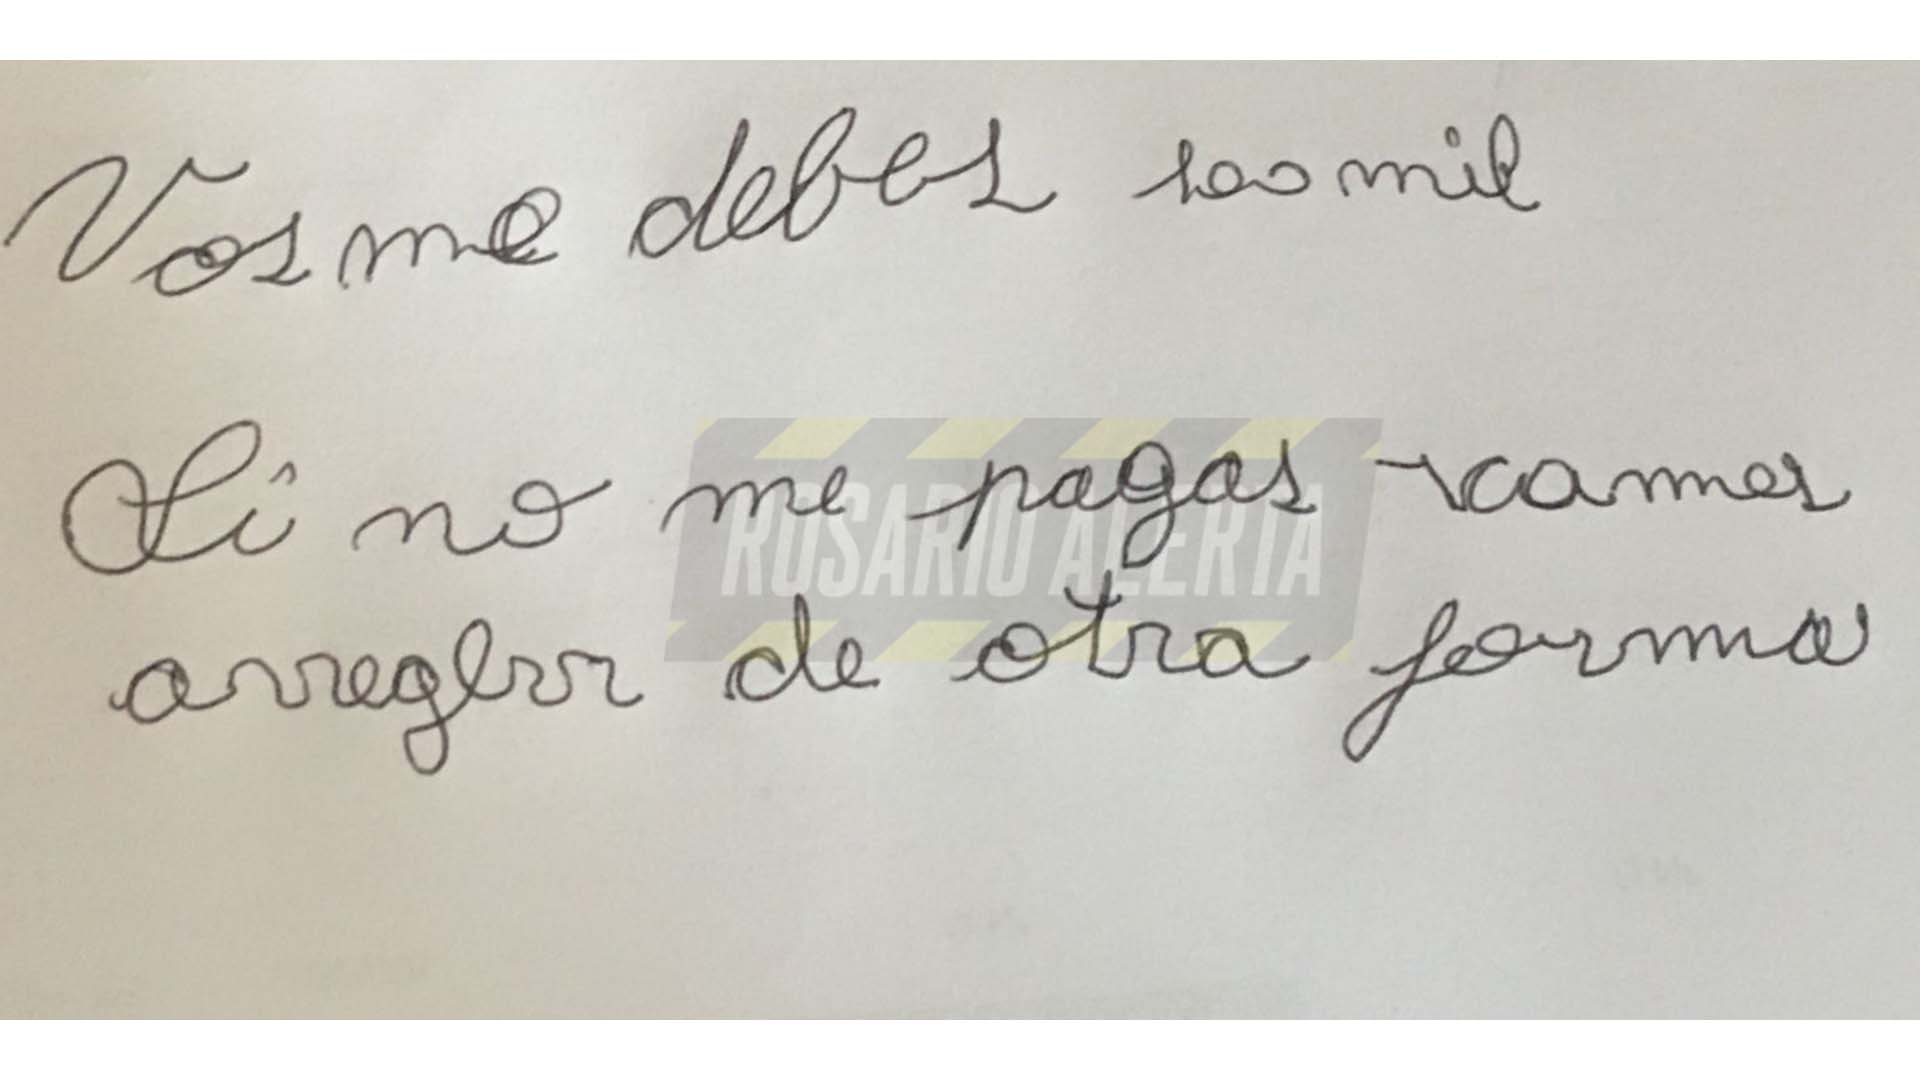 Vos me debes 100 mil
Si no me pagas vamos
ROSARIO ALERTA
arreglar de otra forma